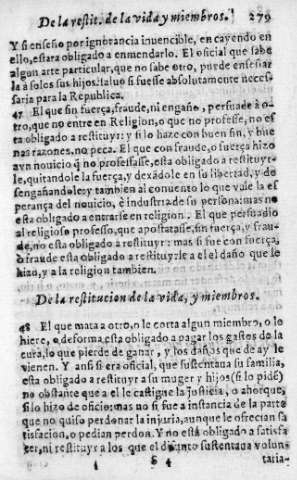 De la restit. de la vida y miembros. 279
Y si enseño por ignorancia inuencible, en cayendo en
ello, estara obligado a enmendarlo. El oficial que sabe
algun arte particular, que no sabe otro, puede enseñar
la a solos sus hijos. saluo si fuesse absolutamente neces-
saria para la Republica.
47 El que sin fuerça, fraude, ni engaño, persuade à o-
tro, que no entre en Religion, o que no professe, no es
ta obligado a restituyr: y si lo haze con buen fin, y bue
nas razones, no peca. El que con fraude, o fuerça hizo
a vn nouicio q̃ no professasse, esta obligado a restituyr-
le, quitandole la fuerça, y dexãdole en su libertad, y de
sengañandole: y tambien al conuento lo que vale la es
perança del nouicio, è industria de su persona: mas no
esta obligado a entrarse en religion. El que persuadio
al religioso professo, que apostatasse, sin fuerça, y frau-
de, no esta obligado a restituyr: mas si fue con fuerça,
ò fraude esta obligado a restituyrle a el el daño que le
hizo, y a la religion tambien.
De la restitucion de la vida, y miembros.
48 El que mata a otro, o le corta algun miembro, o lo
hiere, o deforma, esta obligado a pagar los gastos de la
cura, lo que pierde de ganar, y los daños que de ay le
vienen. Y ansi si era oficial, que sustentaua su familia,
esta obligado a restituyr a su muger y hijos (si lo pidẽ)
no obstante que a el le castigue la justicia, o ahorque,
si lo hizo de oficio: mas no si fue a instancia de la parte
que no quiso perdonar la injuria, aunque le ofrecian sa
tisfacion, o pedian perdon. Y no està obligado a satisfa
zer, ni restituyr a los que el difunto sustentaua volun
S 4 taria-